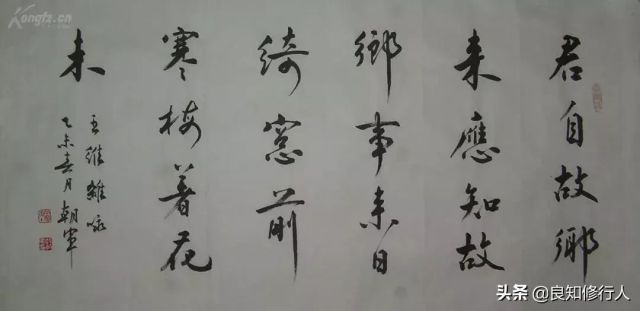 君自故鄉
来應知故
鄉事来日
綺窓前
寒梅著花
未
王維雜咏
乙未春月 朝軍
Kongfz.cn
头条 @良知修行人